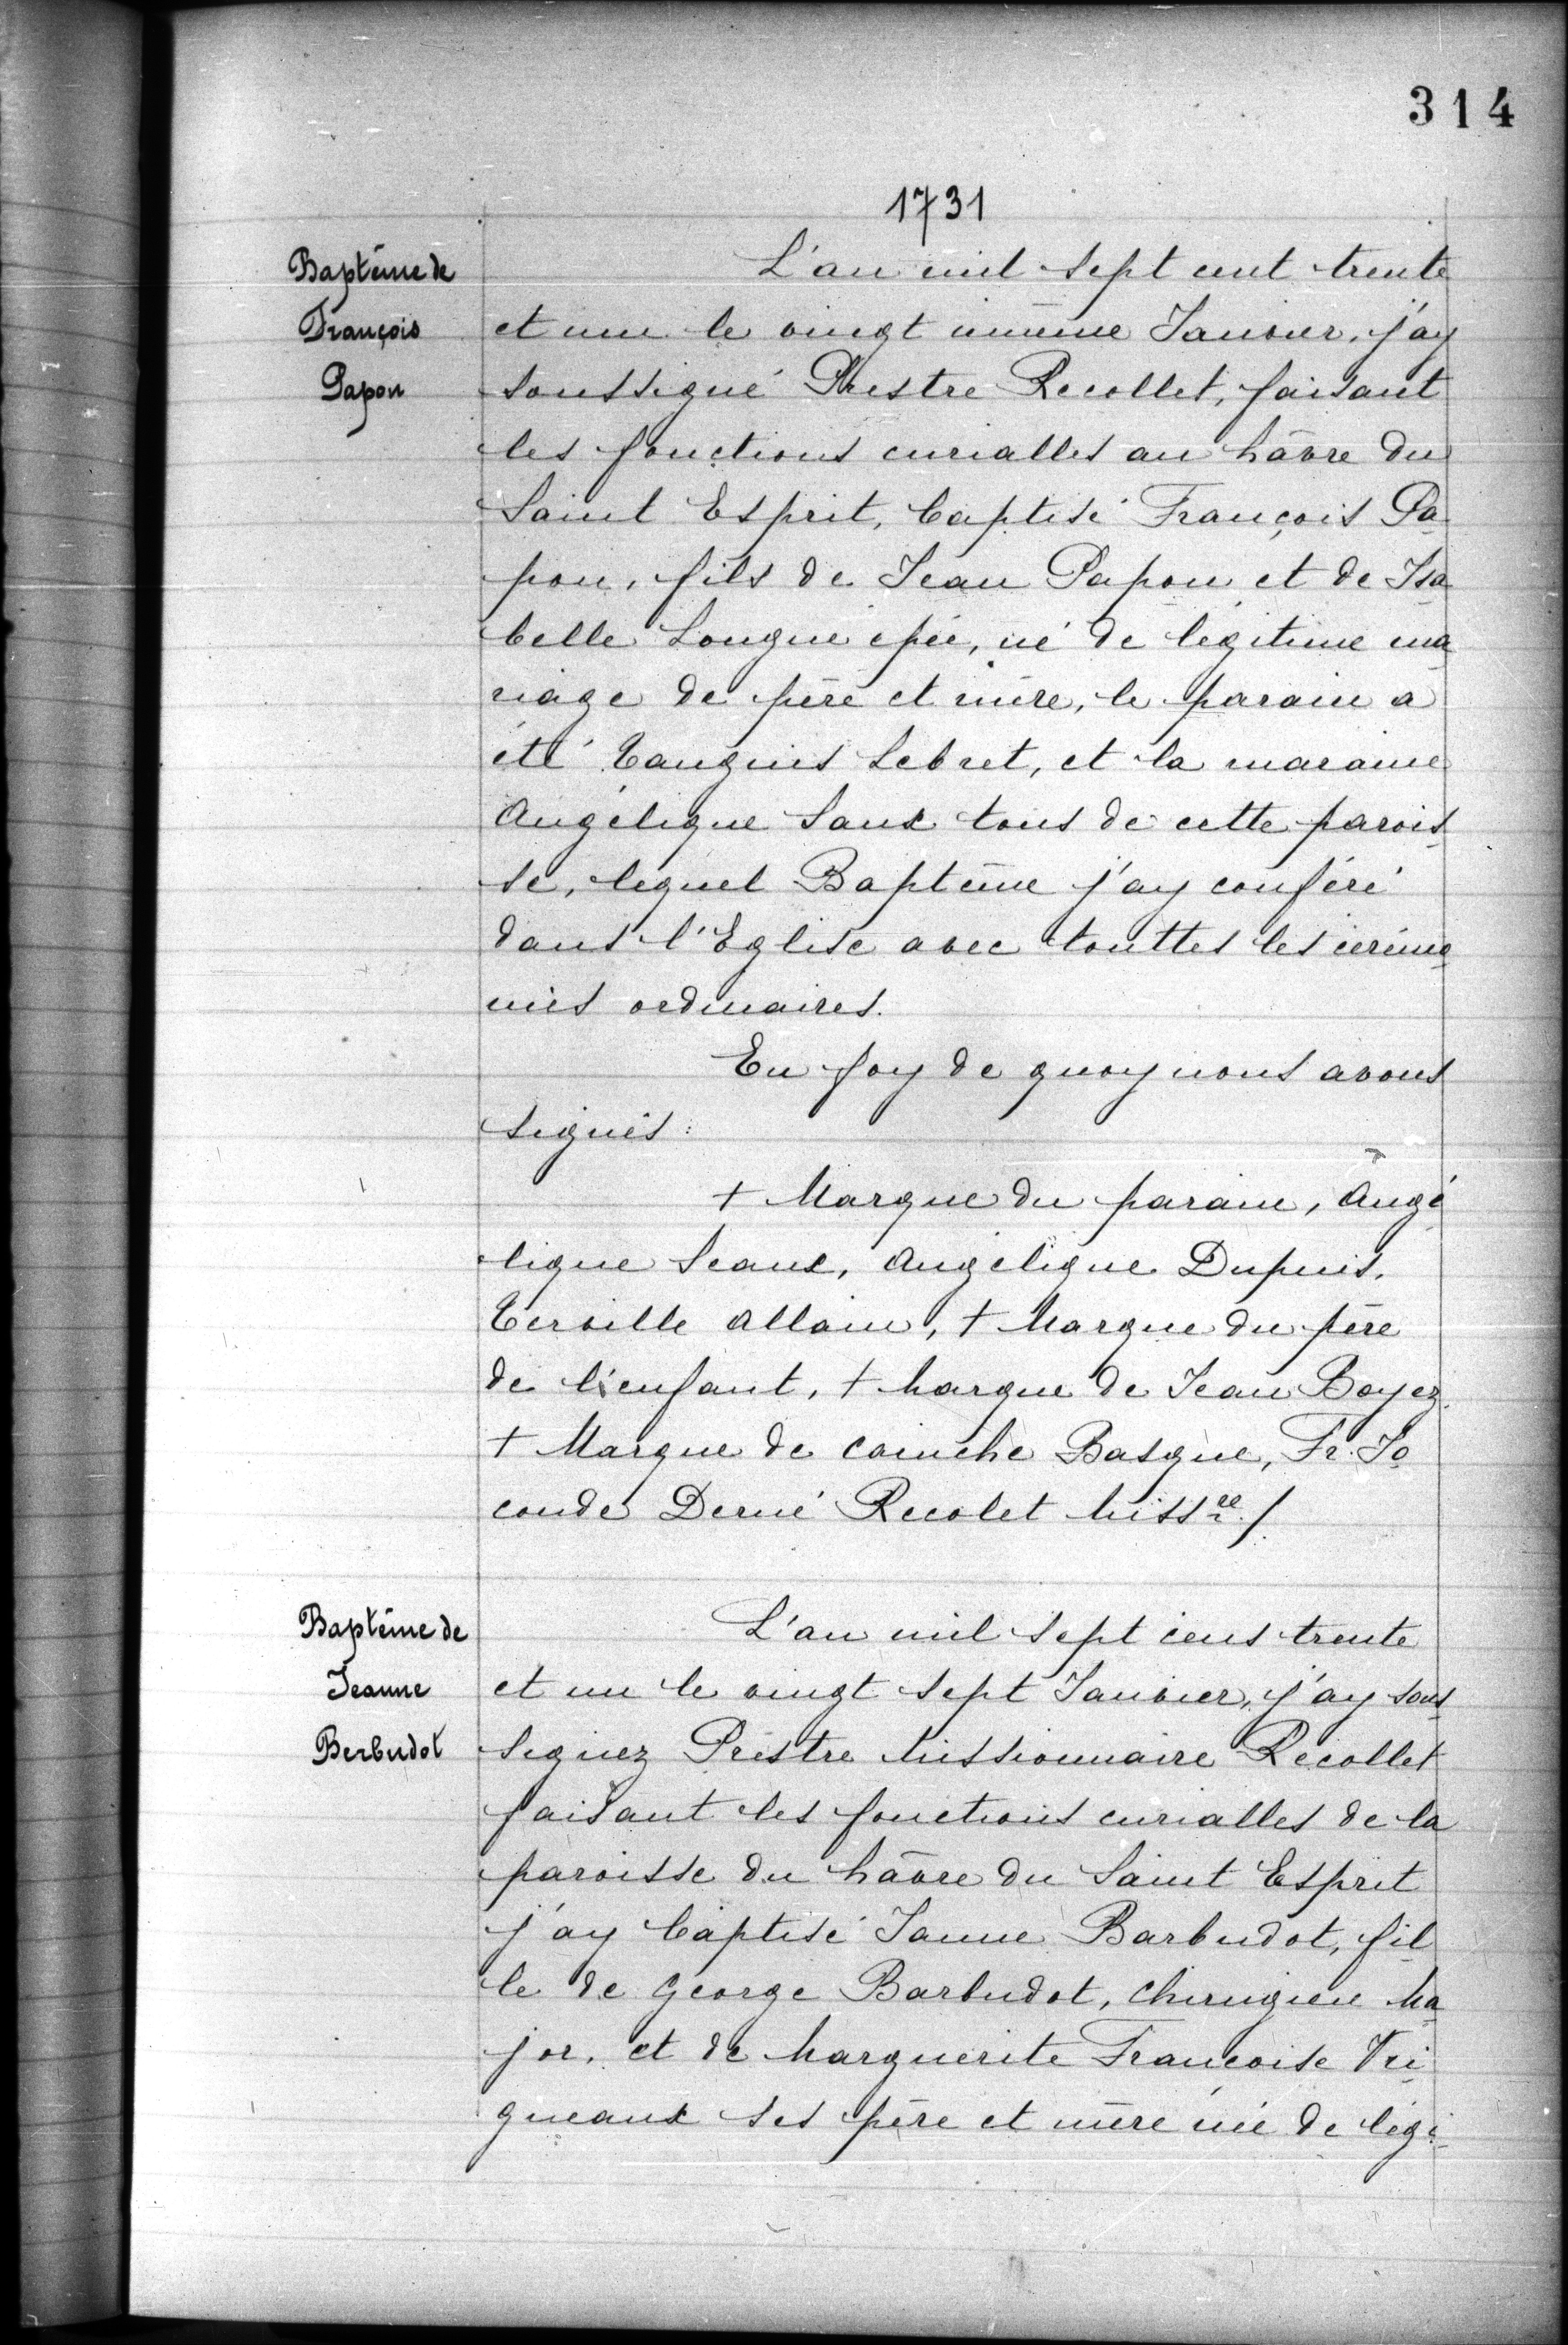 314
1731
Baptême de
François
Papon
L'an mil sept cent trente
et un le vingt unième Janvier, j'ay
soussigné Prestre Recollet, faisant
les fonctions curialles au hâvre du
Saint Esprit, baptisé François Pa
pon, fils de Jean Papon et de Isa
belle Longue épée, né de légitime ma
riage de père et mère, le parain a
été Tanguis Lebret, et la maraine
Angélique Saux tous de cette parois
se, lequel Baptême j'ay conféré
dans l'Eglise avec touttes les cérémo
nies ordinaires.
En foy de quoy nous avons
signés :
+ Marque du parain, Angé
lique Seaux, Angélique Dupuis,
Terville Allain, + Marque du père
de l'enfant, + Marque de Jean Boyez
+ Marque de Cainche Basque, Fr. Jo
conde Derné Recolet Missre /.
Baptême de
Jeanne
Berbudot
L'an mil sept cens trente
et un le vingt sept Janvier, j'ay sous
signez Prestre Missionnaire Recollet
faisant les fonctions curialles de la
paroisse du hâvre du Saint Esprit
j'ay baptisé Janne Barbudot, fil
le de George Barbudot, Chirugien Ma
jor, et de Marguerite Francoise Vri
gneaux ses père et mère née de légi